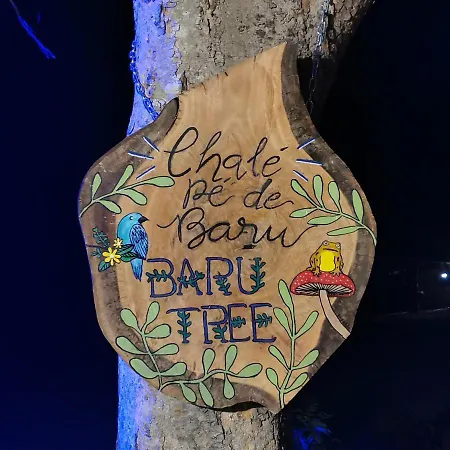 Chalé
Pé de
Baru
BARU
TREE